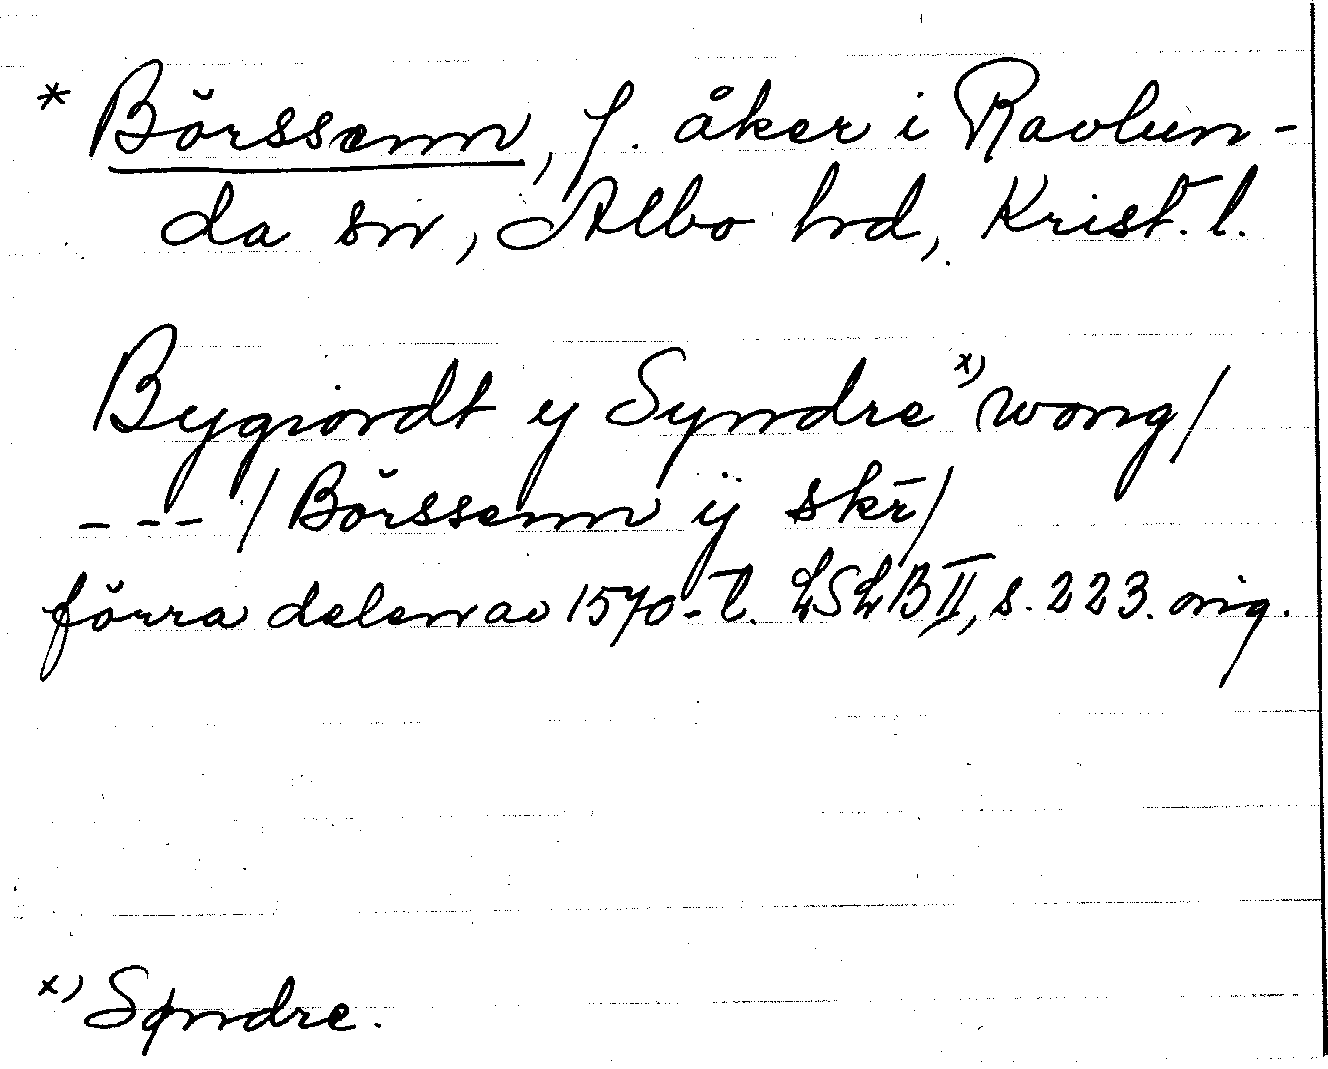 * Börssenn, f. åker i Ravlun-
da sn, Albo hrd, Krist. l.
Bygiordt y Syndre x) wong/
--- / Börssenn ÿ skr/
förra delen av 1570-t. LSLB II, s. 223. orig.
x) Søndre.